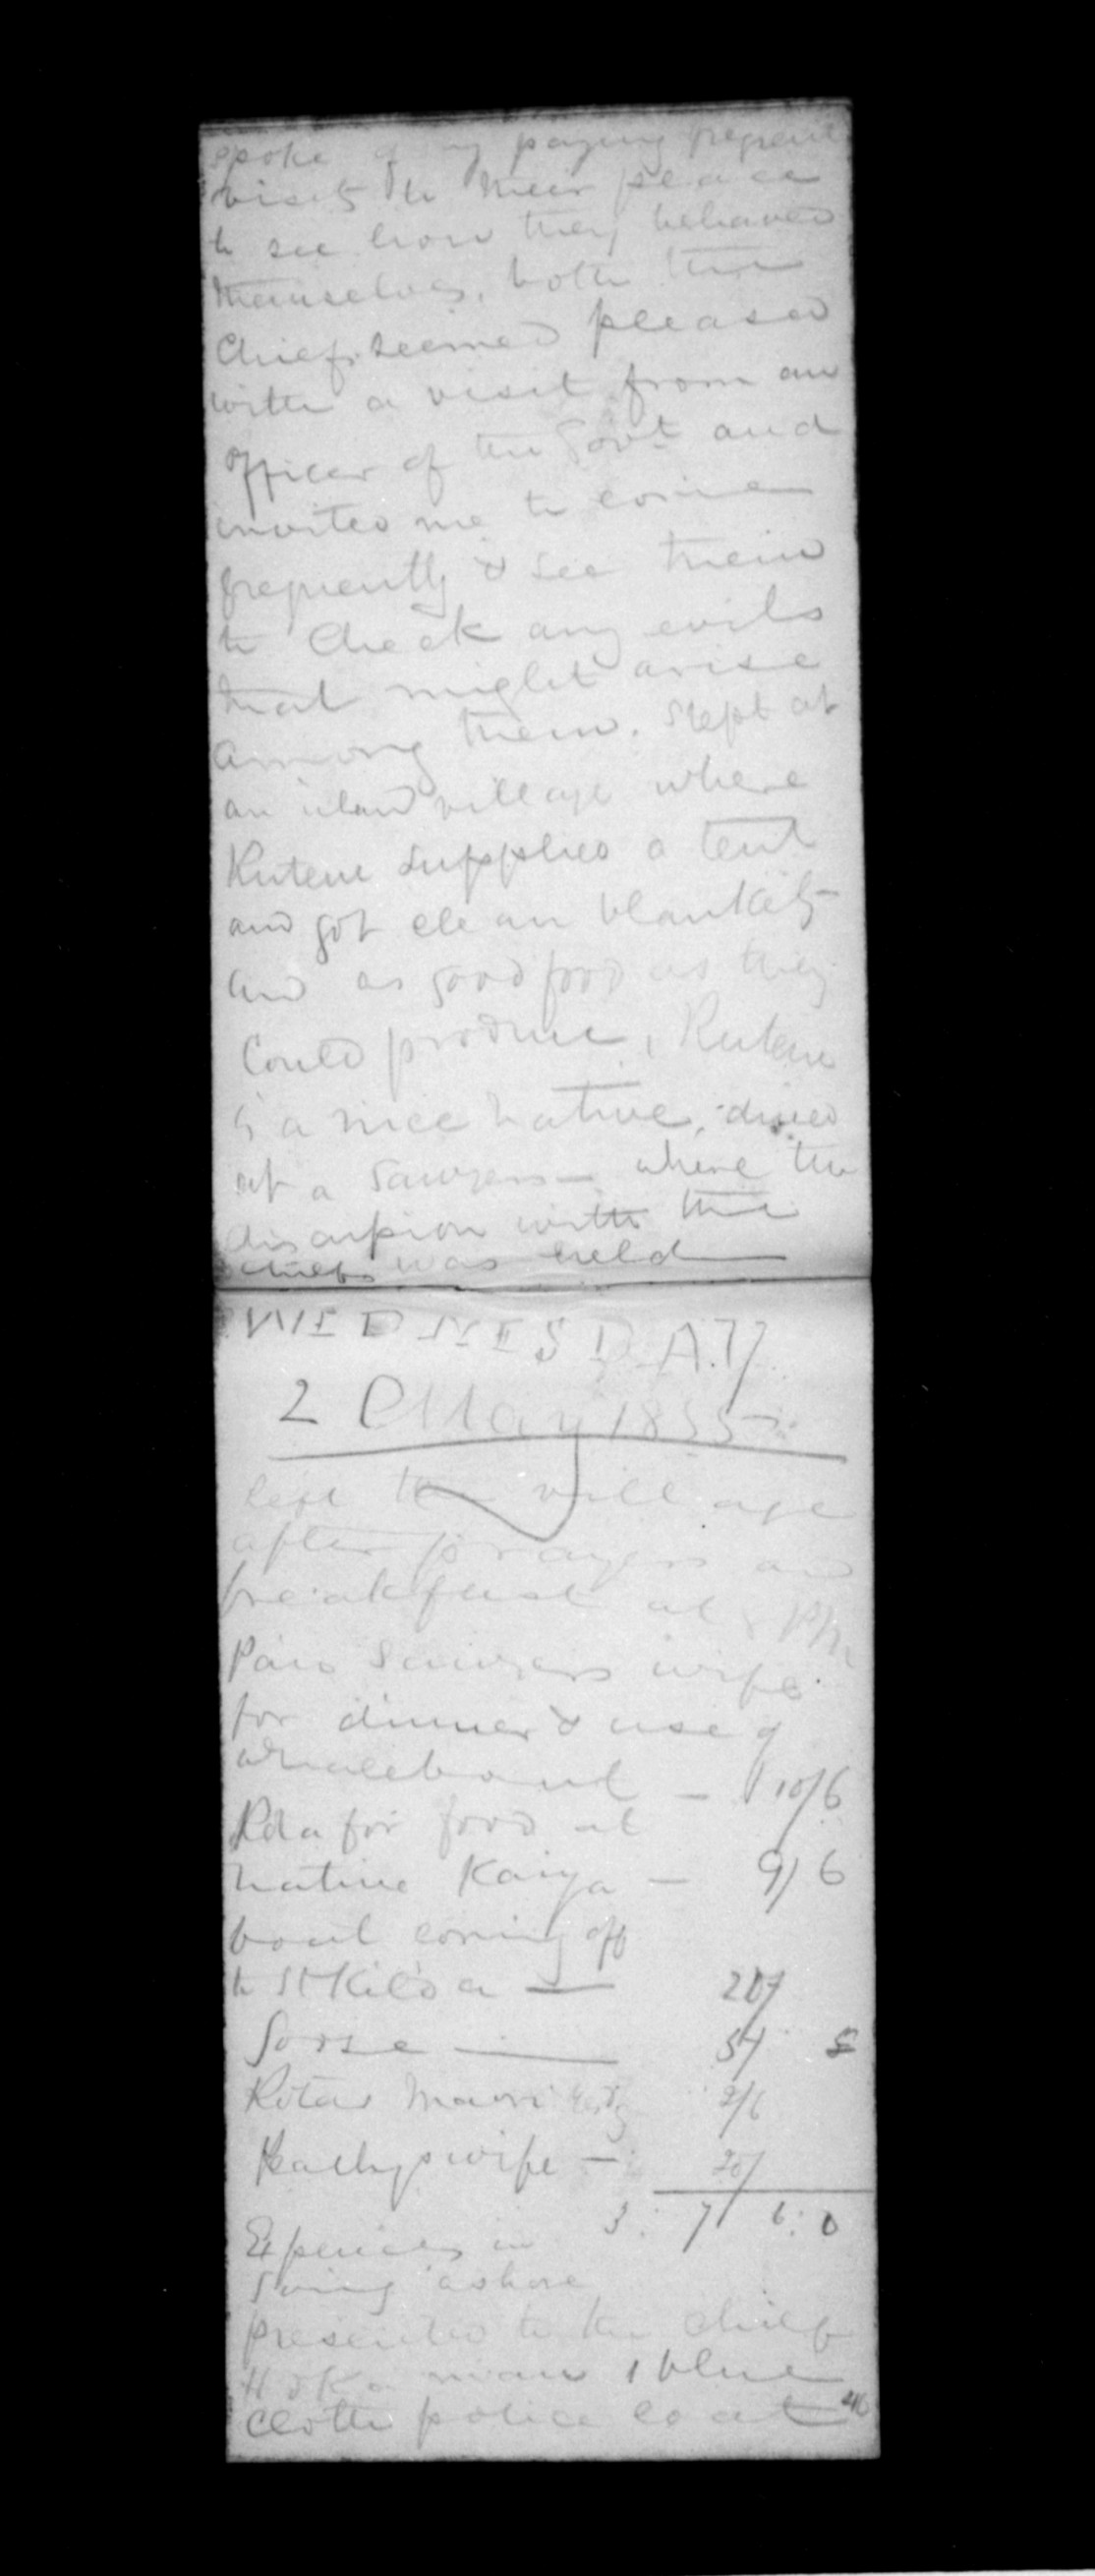 spoke of my paying frequent
visits to their place
to see how they behaved
themselves, both the
Chiefs seemed pleased
with a visit from an
Officer of the Govt and
invited me to come
frequently & see them
to check any evils
that might arise
among them. Slept at
an island village where
Rutene supplied a tent
and got clean blankets
and as good food as they
could produce, Rutene
is a nice native, dined
at a Sawyers - where the
discussion with the
chiefs was held
WEDNESDAY
2 May 1855
left the village
after prayers and
breakfast at 8
Paid Sawyers wife
for dinner & use of
10/6
for food at
native Kaiga - 9/6
boat coming off
to St Kilda - 20/
5/
Maori 2/6
wife - 20/
3: 7: 6: 0
Expences in
going ashore
presented to the chief
1 blue
cloth police coat